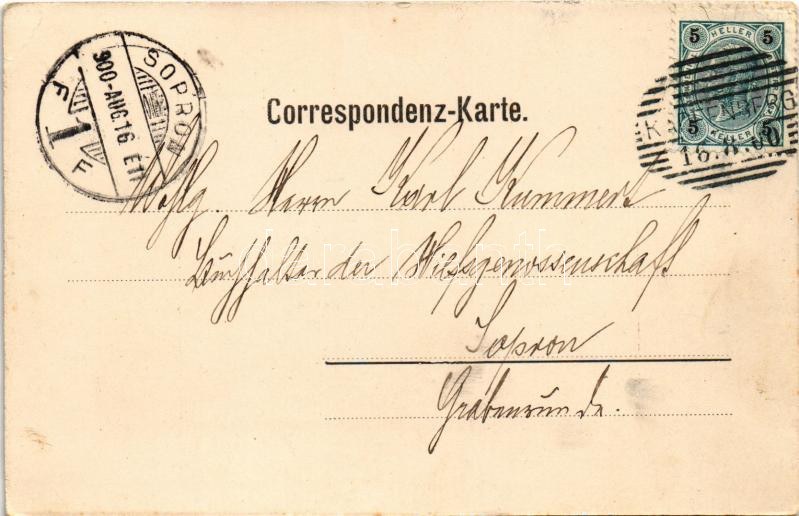 SOPRON
900-AUG.16. É11
F 1 F
5 HELLER 5
5 HELLER 5
KAHLENBERG
16.8.00
Correspondenz-Karte.
Wohlg. Herrn Karl Kummert
Buchhalter der Viehgenossenschaft
Sopron
Grabenrunde.
darabanth